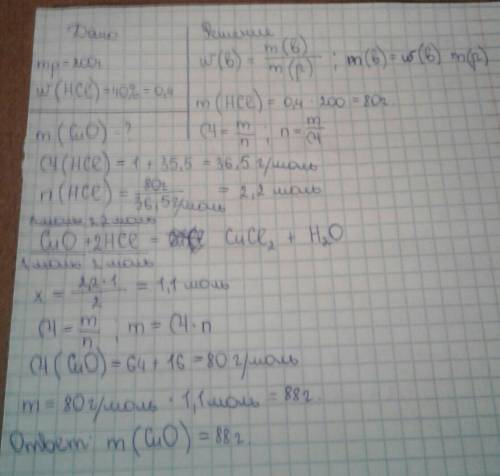 Дано
Решение
mp = 200г
w(HCl) = 40% = 0,4
m(CuO) - ?
w(в) = m(в)/m(р) ; m(в) = w(в) m(р)
m(HCl) = 0,4 · 200 = 80г.
M = m/n ; n = m/M
M(HCl) = 1 + 35,5 = 36,5 г/моль
n(HCl) = 80г/36,5г/моль = 2,2 моль
2,2 моль
CuO + 2HCl = CuCl₂ + H₂O
1 моль 2 моль
x = 2,2·1/2 = 1,1 моль
M = m/n , m = M·n
M(CuO) = 64 + 16 = 80 г/моль
m = 80г/моль · 1,1моль = 88г.
Ответ: m(CuO) = 88г.